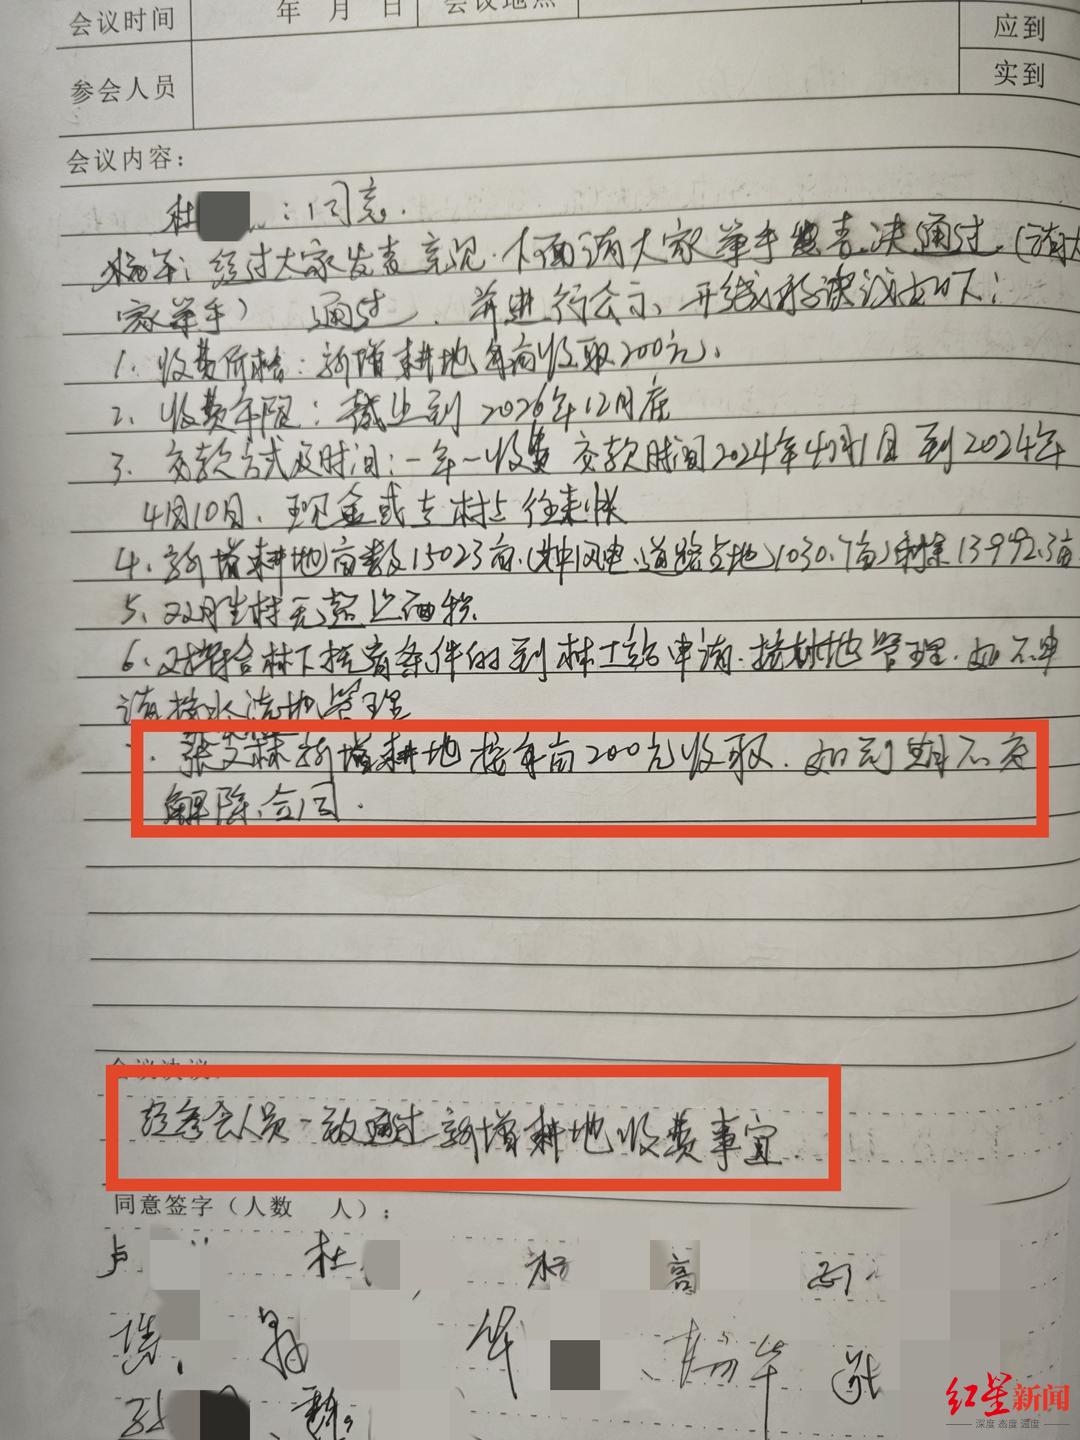 会议时间 年 月 日 会议地点
应到
参会人员 实到
会议内容：
杜 ：同意.
杨华：经过大家发表意见.下面请大家举手发表决通过.（请大
家举手） 通过、并进行公示、形成决议如下：
1、收费价格：新增耕地年亩收取200元.
2、收费年限：截止到2026年12月底
3、交款方式及时间：一年一收费 交款时间2024年4月1日到2024年
4月10日、现金或支村上往来帐
4、新增耕地亩数15023亩.（其中风电、道路占地）1030.7亩）剩余13992.3亩
5、双胜村无超占面积
6、对符合林下抚育条件的到林工站申请.按林地管理.如不申
请按水浇地管理
张文林新增耕地按年亩200元收取.如到期不交
解除合同.
会议决议：
经参会人员一致通过新增耕地收费事宜.
同意签字（人数 人）：
卢 杜 高
华 杨华 张
红星新闻
深度 态度 温度